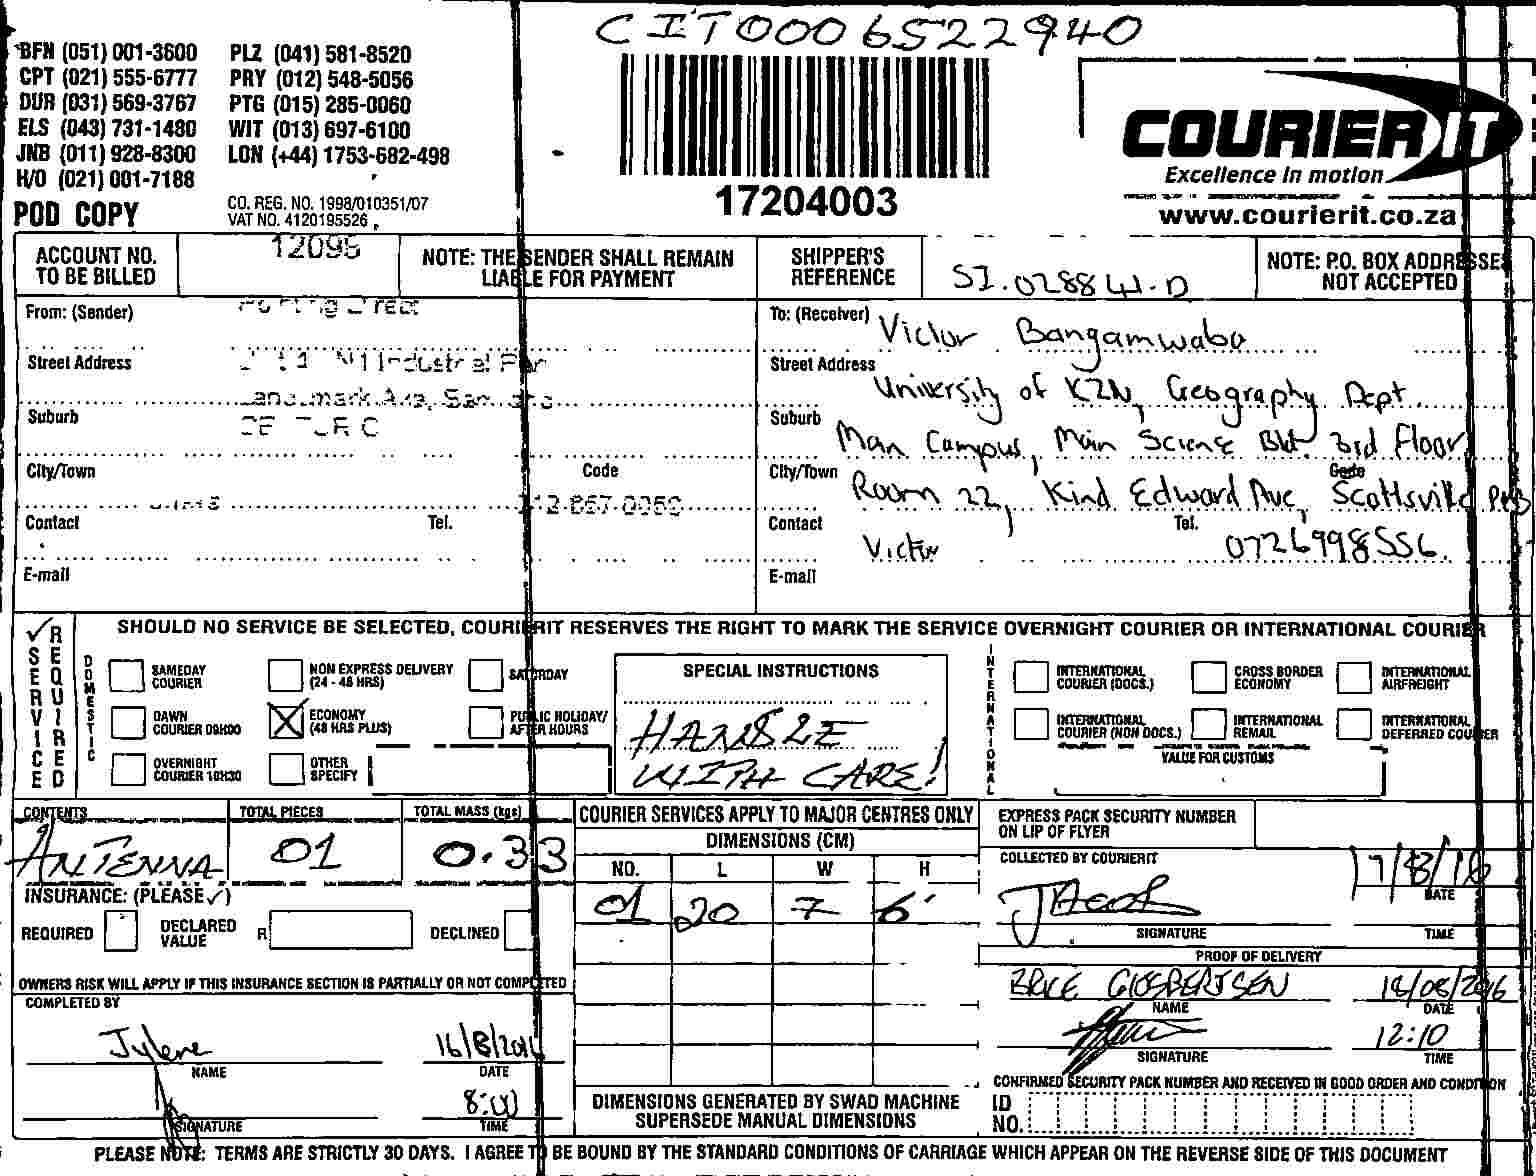 CIT0006522940
BFN (051) 001-3600 PLZ (041) 581-8520
CPT (021) 555-6777 PRY (012) 548-5056
DUR (031) 569-3767 PTG (015) 285-0060
ELS (043) 731-1480 WIT (013) 697-6100
JNB (011) 928-8300 LON (+44) 1753-682-498
H/O (021) 001-7188
POD COPY
CO. REG. NO. 1998/010351/07
VAT NO. 4120195526
17204003
COURIER IT
Excellence in motion
www.courierit.co.za
ACCOUNT NO. TO BE BILLED
12095
NOTE: THE SENDER SHALL REMAIN LIABLE FOR PAYMENT
SHIPPER'S REFERENCE
SI.02884.D
NOTE: P.O. BOX ADDRESSES NOT ACCEPTED
From: (Sender)
Street Address
Industrial
Suburb
City/Town Code
Contact Tel.
E-mail
To: (Receiver) Victor Bangamwabo
Street Address University of KZN, Geography Dept
Suburb Main Campus, Main Science Bld. 3rd Floor
City/Town Code
Room 22, Kind Edward Ave, Scottsville PMB
Contact Victor Tel. 0726998556.
E-mail
SERVICE REQUIRED
SHOULD NO SERVICE BE SELECTED, COURIERIT RESERVES THE RIGHT TO MARK THE SERVICE OVERNIGHT COURIER OR INTERNATIONAL COURIER
DOMESTIC
SAMEDAY COURIER
NON EXPRESS DELIVERY (24 - 48 HRS)
SATURDAY
DAWN COURIER 09H00
ECONOMY (48 HRS PLUS)
PUBLIC HOLIDAY/ AFTER HOURS
OVERNIGHT COURIER 10H30
OTHER SPECIFY
SPECIAL INSTRUCTIONS
HANDLE
WITH CARE!
INTERNATIONAL
INTERNATIONAL COURIER (DOCS.)
CROSS BORDER ECONOMY
INTERNATIONAL AIRFREIGHT
INTERNATIONAL COURIER (NON DOCS.)
INTERNATIONAL REMAIL
INTERNATIONAL DEFERRED COURIER
VALUE FOR CUSTOMS
CONTENTS
ANTENNA
TOTAL PIECES
01
TOTAL MASS (kgs)
0.33
INSURANCE: (PLEASE ✓)
REQUIRED
DECLARED VALUE R
DECLINED
OWNERS RISK WILL APPLY IF THIS INSURANCE SECTION IS PARTIALLY OR NOT COMPLETED
COMPLETED BY
Jylene 16/8/2016
NAME DATE
8:00
SIGNATURE TIME
COURIER SERVICES APPLY TO MAJOR CENTRES ONLY
DIMENSIONS (CM)
NO. L W H
01 20 7 6
DIMENSIONS GENERATED BY SWAD MACHINE SUPERSEDE MANUAL DIMENSIONS
EXPRESS PACK SECURITY NUMBER ON LIP OF FLYER
COLLECTED BY COURIERIT
Jacob 17/8/16
DATE
SIGNATURE TIME
PROOF OF DELIVERY
BRICE GIJSBERTSEN 18/08/2016
NAME DATE
12:10
SIGNATURE TIME
CONFIRMED SECURITY PACK NUMBER AND RECEIVED IN GOOD ORDER AND CONDITION
ID NO.
PLEASE NOTE: TERMS ARE STRICTLY 30 DAYS. I AGREE TO BE BOUND BY THE STANDARD CONDITIONS OF CARRIAGE WHICH APPEAR ON THE REVERSE SIDE OF THIS DOCUMENT